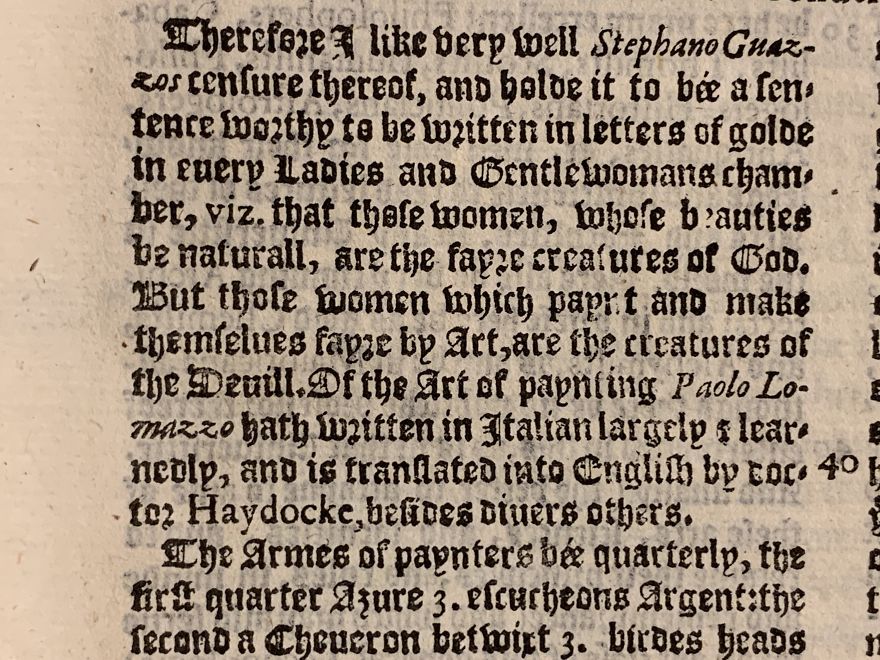 Therefore I like very well Stephano Guaz-
zos censure thereof, and holde it to bée a sen-
tence worthy to be written in letters of golde
in euery Ladies and Gentlewomans cham-
ber, viz. that those women, whose beauties
be naturall, are the fayre creatures of God.
But those women which paynt and make
themselues fayre by Art, are the creatures of
the Deuill. Of the Art of paynting Paolo Lo-
mazzo hath written in Italian largely & lear-
nedly, and is translated into English by doc-
40
tor Haydocke, besides diuers others.
The Armes of paynters bée quarterly, the
first quarter Azure 3. escucheons Argent: the
second a Cheueron betwixt 3. birdes heads